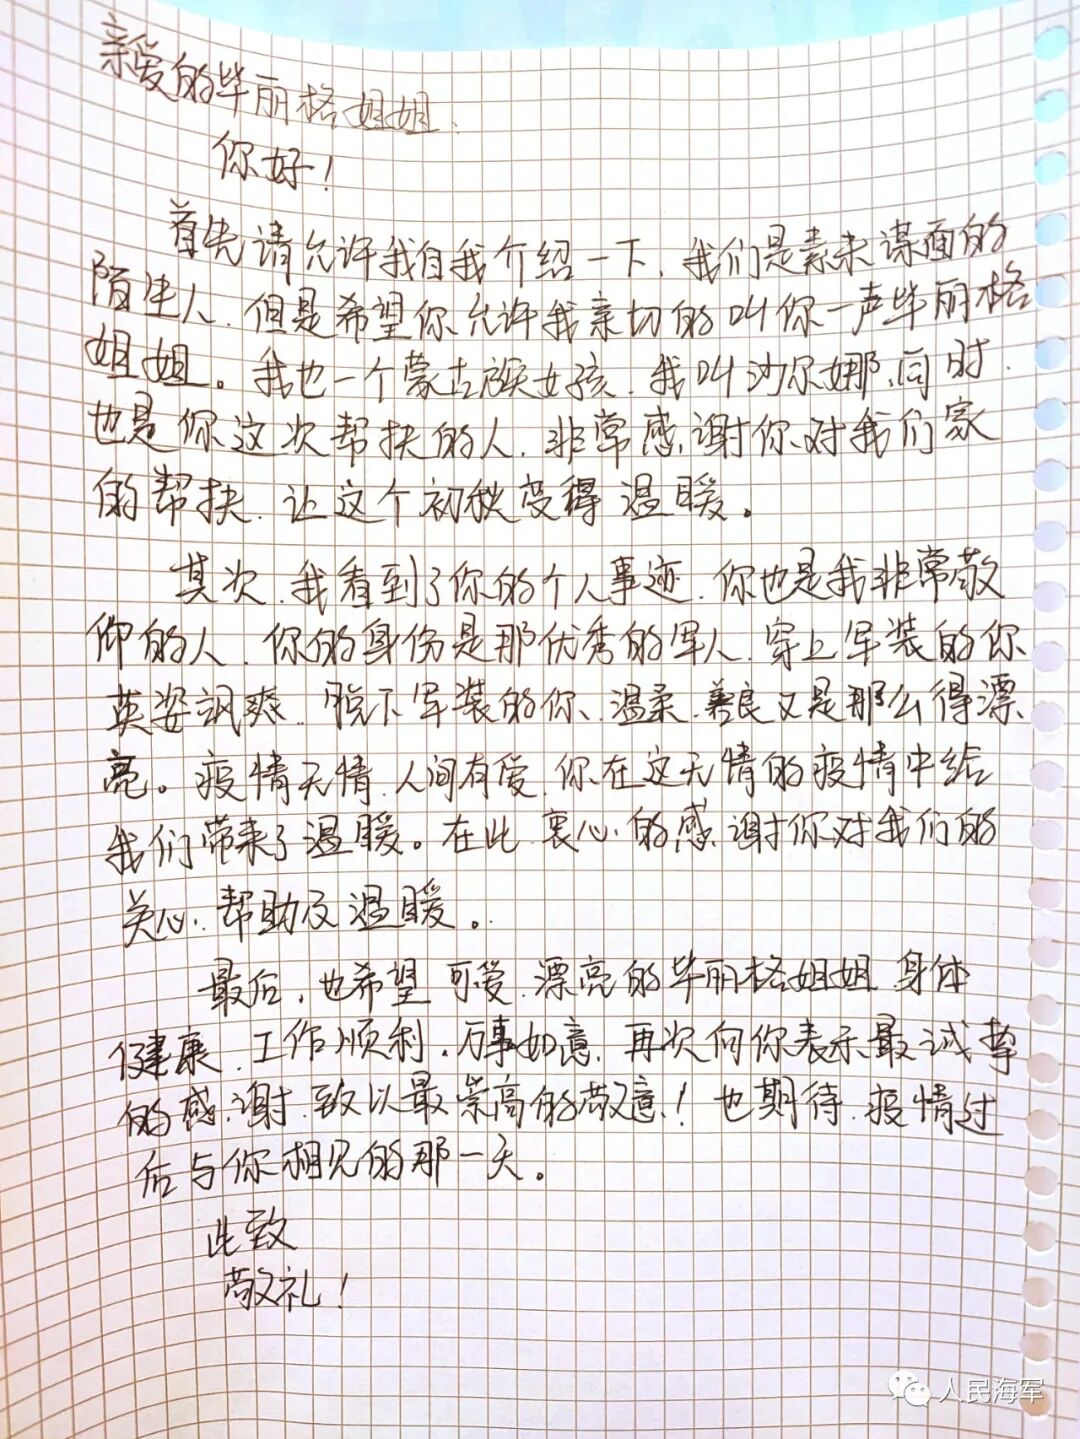 亲爱的毕丽格姐姐：
你好！
首先请允许我自我介绍一下，我们是素未谋面的
陌生人，但是希望你允许我亲切的叫你一声毕丽格
姐姐。我也一个蒙古族女孩，我叫沙尔娜，同时，
也是你这次帮扶的人，非常感谢你对我们家
的帮扶，让这个初秋变得温暖。
其次，我看到了你的个人事迹，你也是我非常敬
仰的人，你的身份是那优秀的军人，穿上军装的你
英姿飒爽，脱下军装的你，温柔、善良又是那么得漂
亮。疫情无情，人间有爱，你在这无情的疫情中给
我们带来了温暖。在此，衷心的感谢你对我们的
关心、帮助及温暖。
最后，也希望可爱、漂亮的毕丽格姐姐，身体
健康，工作顺利，万事如意，再次向你表示最诚挚
的感谢，致以最崇高的敬意！也期待，疫情过
后与你相见的那一天。
此致
敬礼！
人民海军